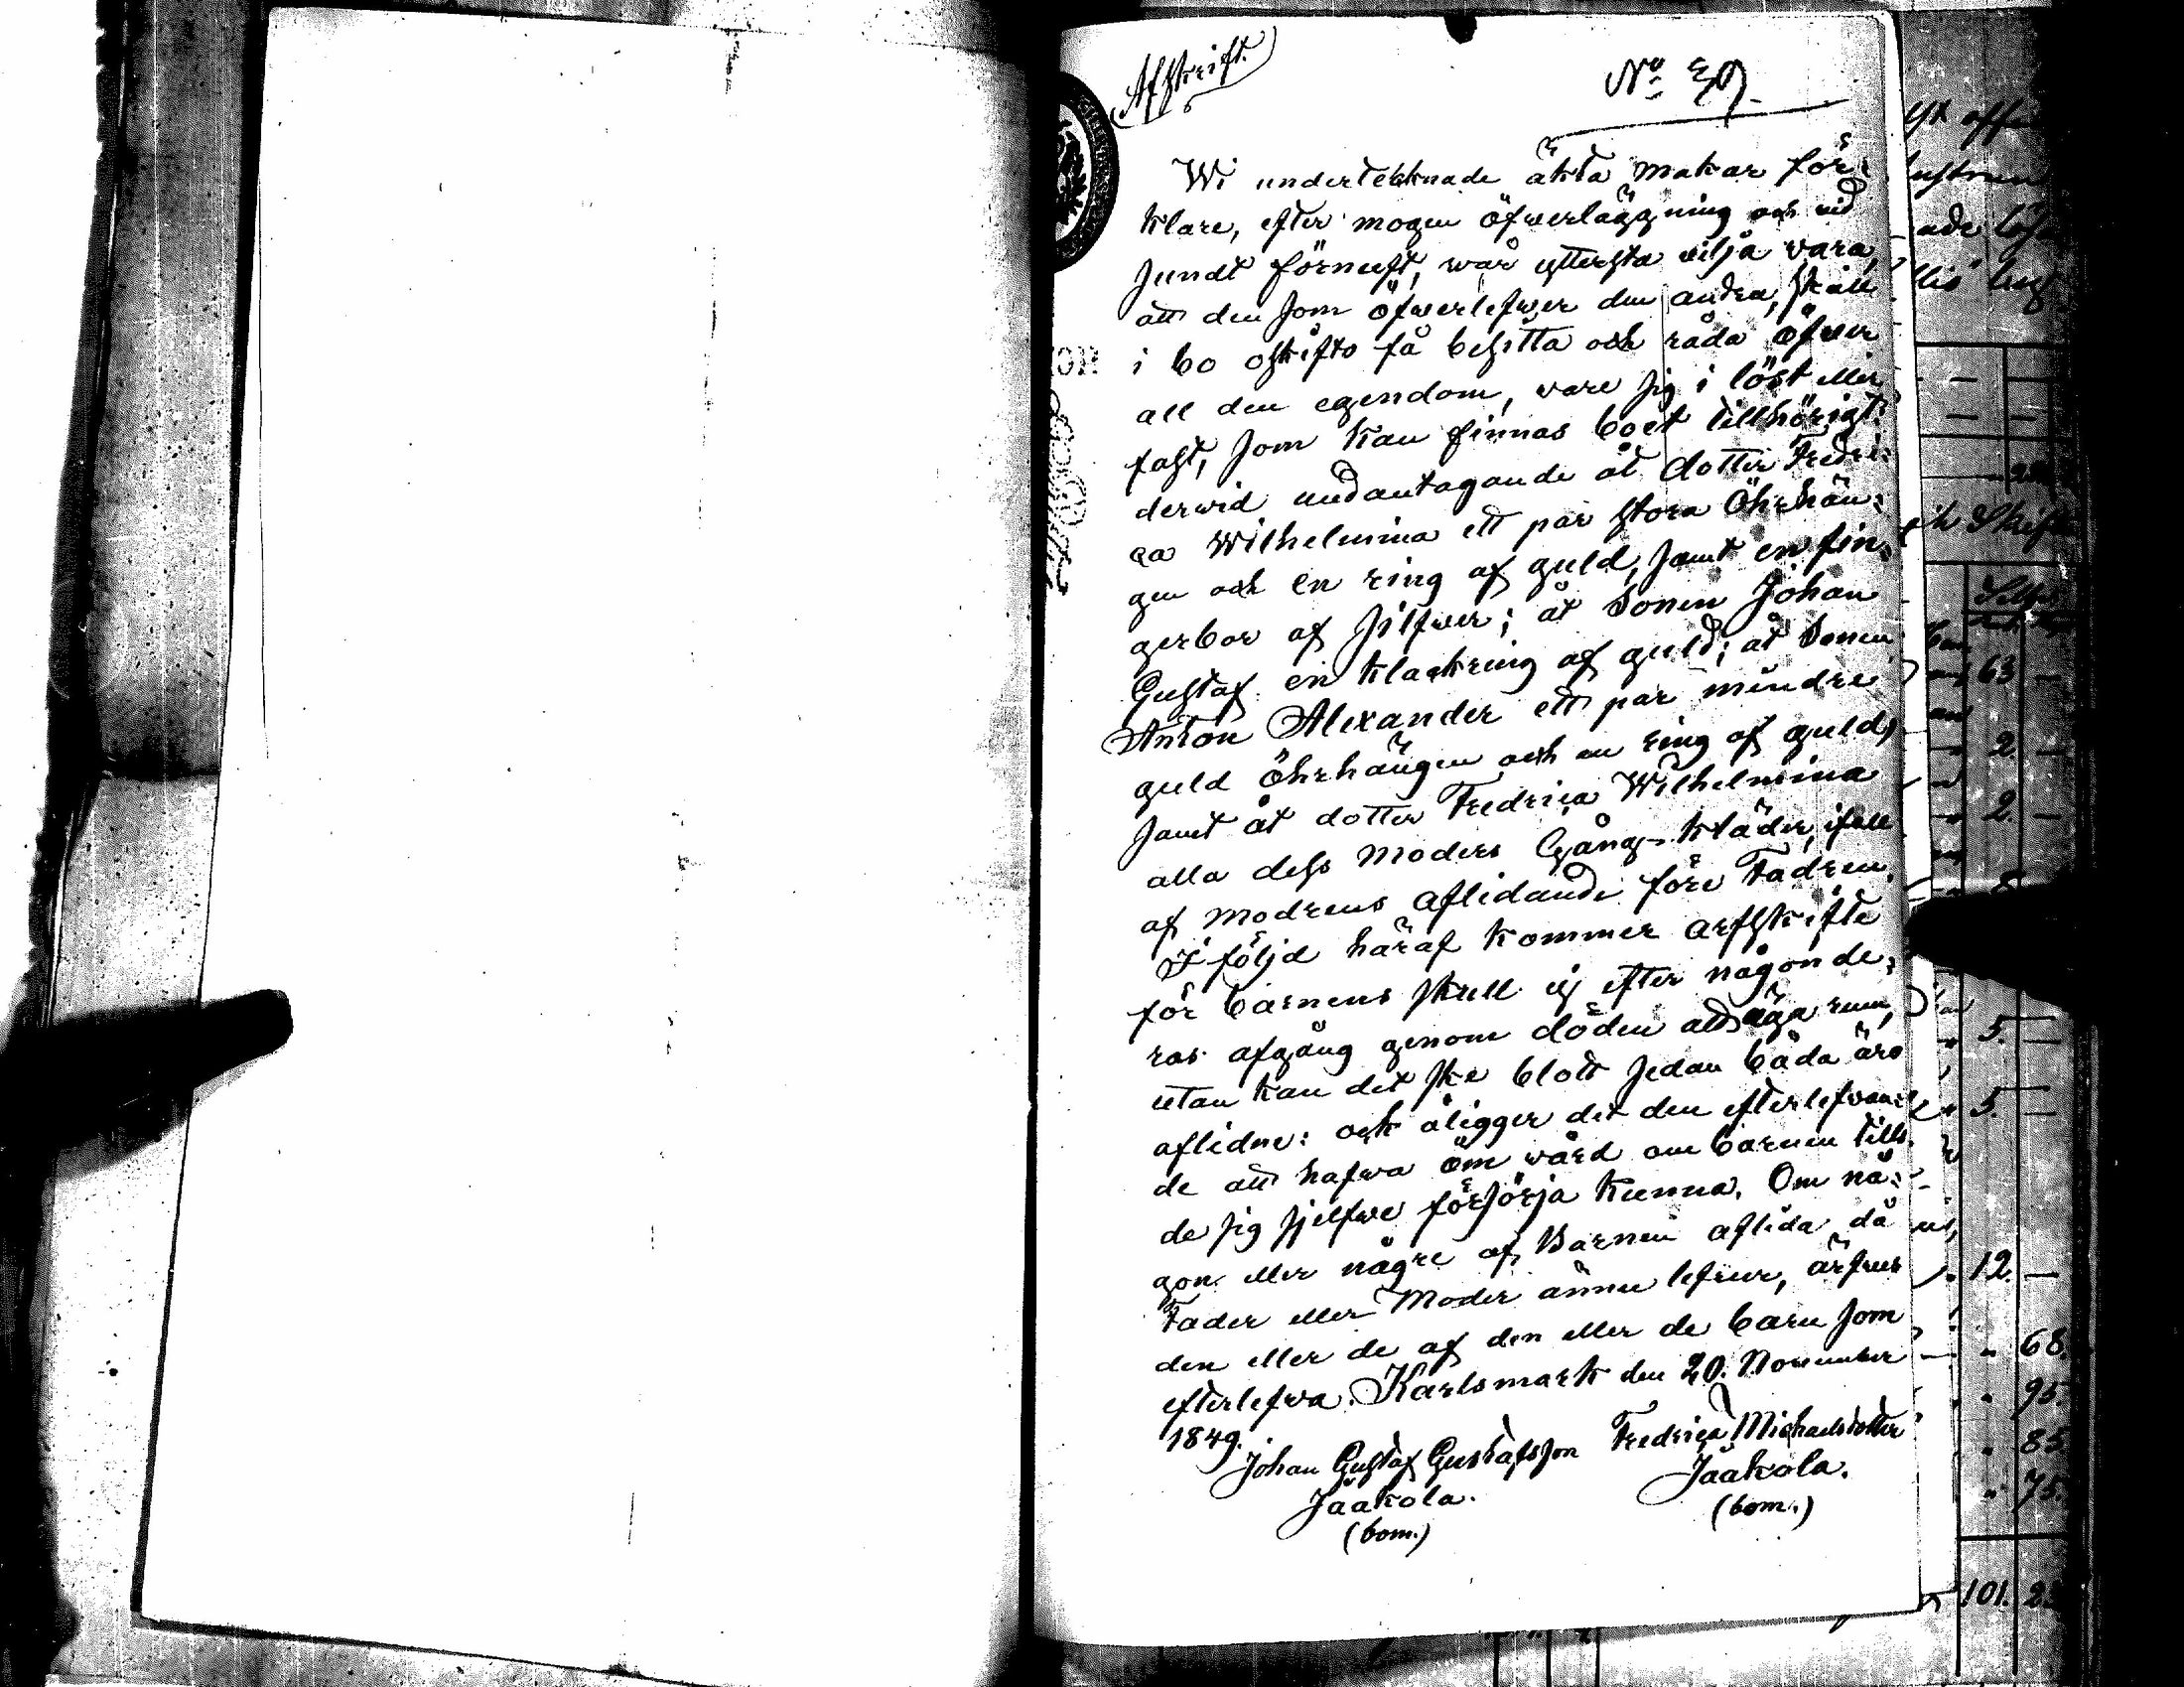 Afskrift.
No 39.
Wi undertecknade äkta makar för:
klare, efter mogen öfwerläggning och wid
sundt förnuft, wår yttersta wilja vara,
att den som öfwerlefwer den andra, skall
i bo oskifto få besitta och råda öfwer
all den egendom, vare sig i löst eller
fast, som kan finnas boet tillhörigt:
derwid undantagande åt dotter Fredri:
ca Wilhelmina ett par stora Öhrhän:
gen och en ring af guld, samt en fin:
gerbor af silfwer; åt Sonen Johan
Gustaf en klackring af guld; åt Sonen
Anton Alexander ett par mindre
guld öhrhängen och en ring af guld,
samt åt dotter Fredrica Wilhelmina
alla dess Moders Gång-kläder, ifall
af modrens aflidande före Fadren.
I följd häraf kommer arfskifte
för barnens skull ej efter någonde:
ras afgång genom döden att äga rum,
utan kan det ske blott sedan båda äro
aflidne: och åligger det den efterlefwan:
de att hafwa öm wård om barnen tills
de sig sjelfwe försörja kunna. Om nå:
gon eller någre af Barnen aflida då
Fader eller Moder ännu lefwer, ärfwes
den eller de af den eller de barn som
efterlefwa. Karlsmark den 20. November
1849.
Johan Gustaf Gustafsson Fredrica Michaelsdotter
Jäakola. Jäakola.
(bom.) (bom.)
63 —
2. —
2. —
5. —
5. —
12. —
68.
95.
85
75.
101.